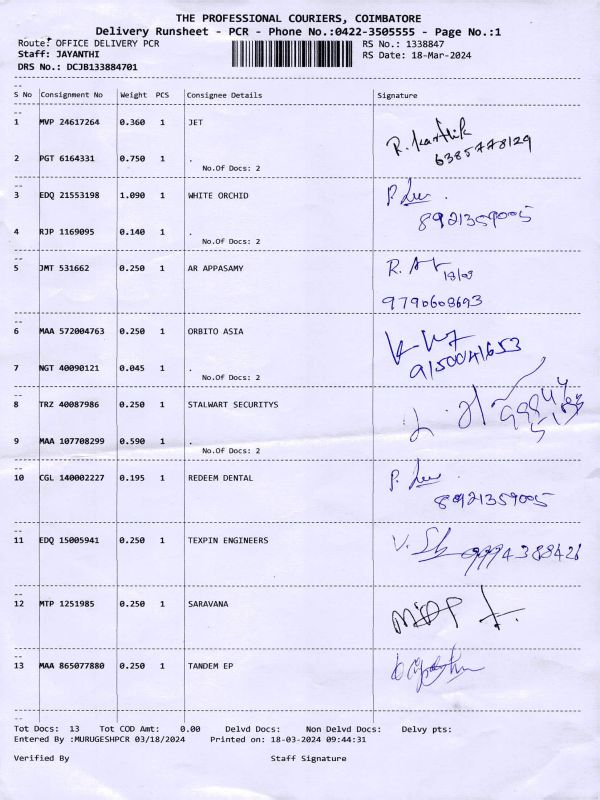 THE PROFESSIONAL COURIERS, COIMBATORE
Delivery Runsheet - PCR - Phone No.:0422-3505555 - Page No.:1
Route: OFFICE DELIVERY PCR RS No.: 1338847
Staff: JAYANTHI RS Date: 18-Mar-2024
DRS No.: DCJB133884701
S No Consignment No Weight PCS Consignee Details Signature
1 MVP 24617264 0.360 1 JET R. Karthik
6385778129
2 PGT 6164331 0.750 1 .
No.Of Docs: 2
3 EDQ 21553198 1.090 1 WHITE ORCHID
8921359005
4 RJP 1169095 0.140 1 .
No.Of Docs: 2
5 JMT 531662 0.250 1 AR APPASAMY R.
18/03
9790608693
6 MAA 572004763 0.250 1 ORBITO ASIA
9150041653
7 NGT 40090121 0.045 1 .
No.Of Docs: 2
8 TRZ 40087986 0.250 1 STALWART SECURITYS
9 MAA 107708299 0.590 1 .
No.Of Docs: 2
10 CGL 140002227 0.195 1 REDEEM DENTAL
8921359005
11 EDQ 15005941 0.250 1 TEXPIN ENGINEERS
9994388426
12 MTP 1251985 0.250 1 SARAVANA
13 MAA 865077880 0.250 1 TANDEM EP
Tot Docs: 13 Tot COD Amt: 0.00 Delvd Docs: Non Delvd Docs: Delvy pts:
Entered By :MURUGESHPCR 03/18/2024 Printed on: 18-03-2024 09:44:31
Verified By Staff Signature